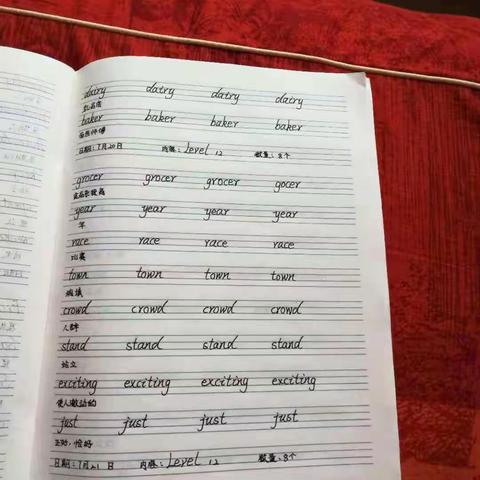 dairy dairy dairy dairy
乳品店
baker baker baker baker
面包师傅
日期:7月20日 内容:Level 12 数量:8个
grocer grocer grocer gocer
食品杂货商
year year year year
年
race race race race
比赛
town town town town
城镇
crowd crowd crowd crowd
人群
stand stand stand stand
站立
exciting exciting exciting exciting
使人激动的
just just just just
正好,恰好
日期:7月21日 内容:Level 12 数量:8个